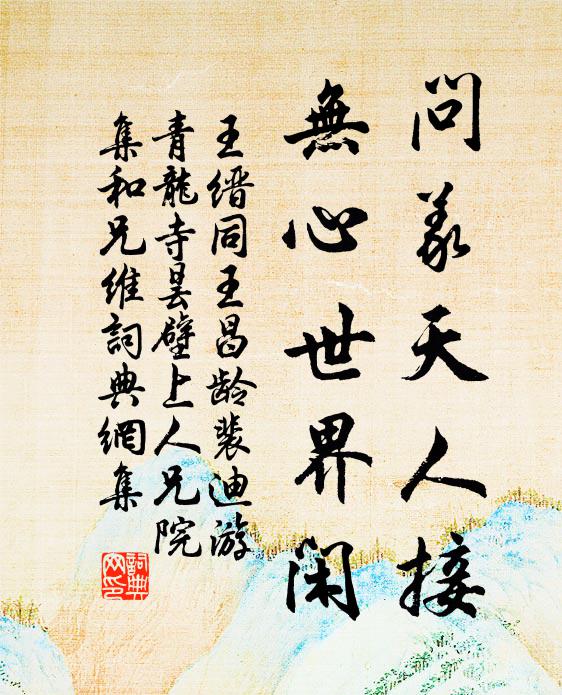 問義天人接
無心世界閑
王缙同王昌龄裴迪游
青龍寺昙壁上人兄院
集和兄維詞典網集
詞典
网印